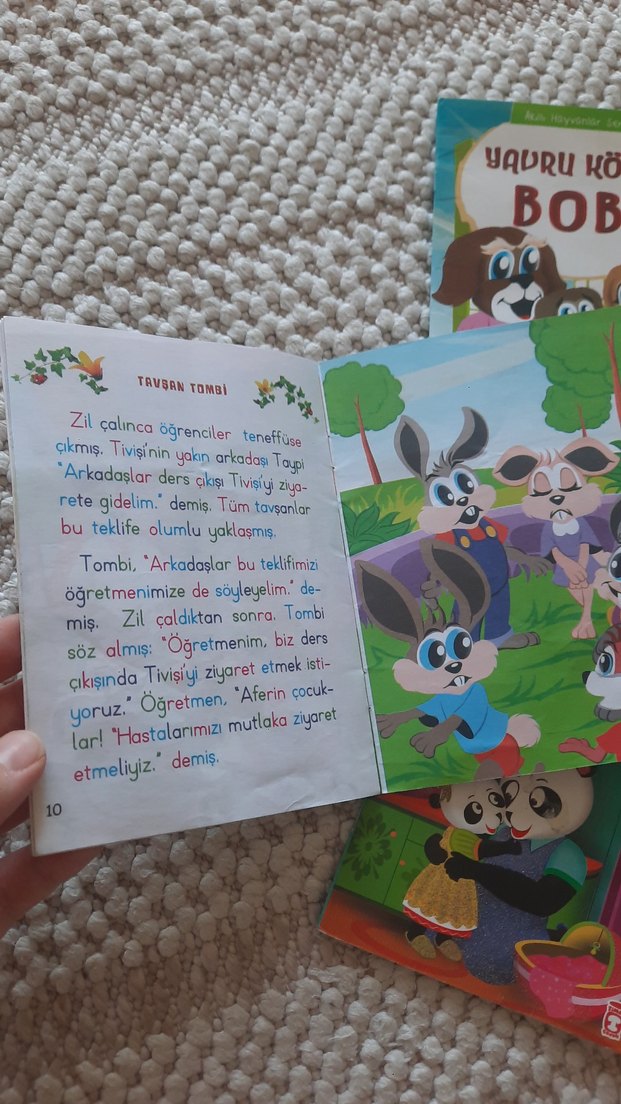 Akıllı Hayvanlar
YAVRU
BOB
TAVŞAN TOMBİ
Zil çalınca öğrenciler teneffüse
çıkmış. Tivişi'nin yakın arkadaşı Taypi
"Arkadaşlar ders çıkışı Tivişi'yi ziya-
rete gidelim." demiş. Tüm tavşanlar
bu teklife olumlu yaklaşmış.
Tombi, "Arkadaşlar bu teklifimizi
öğretmenimize de söyleyelim." de-
miş. Zil çaldıktan sonra. Tombi
söz almış: "Öğretmenim, biz ders
çıkışında Tivişi'yi ziyaret etmek isti-
yoruz." Öğretmen, "Aferin çocuk-
lar! "Hastalarımızı mutlaka ziyaret
etmeliyiz." demiş.
10